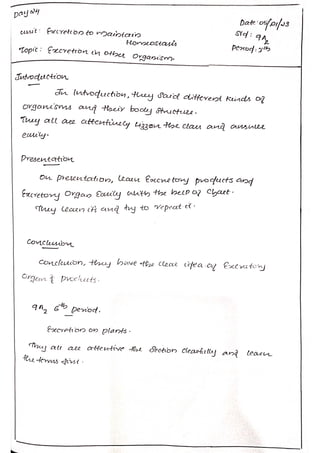 Day 24
Date: 05/01/23
Unit: Excretion to maintain Homeostasis
Std: 9A2
Topic: Excretion in other Organism.
Period: 5th
Introduction
In Introduction, they said different kinds of
organisms and their body structure.
They all are attentively Lizzen the class and answer
easily.
Presentation
On presentation, learn Excretory products and
Excretory Organ Easily with the help of Chart.
They learn it and try to repeat it.
Conclusion
Conclusion, they have the clear idea of Excretory
Organ & products.
9A2 6th period.
Excretion on plants.
They all are attentive the section clearfully and learn
the terms first.